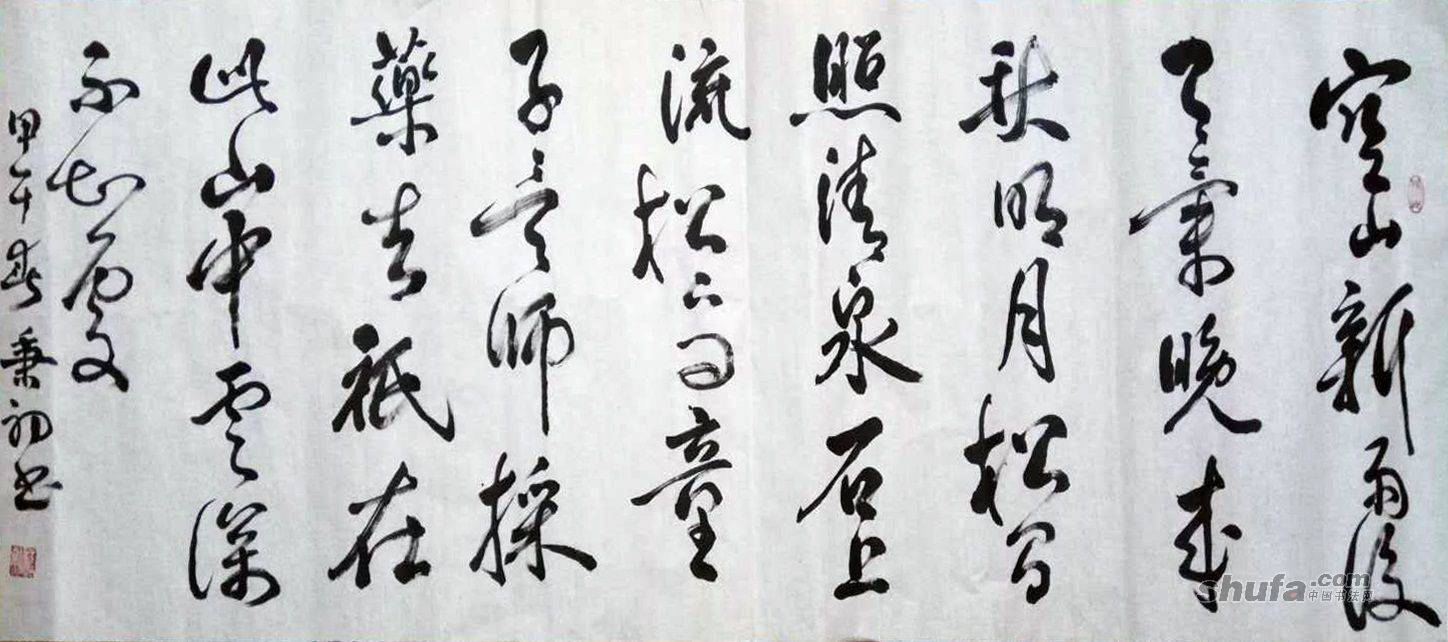 空山新雨後
天氣晚来
秋明月松间
照清泉石上
流松下问童
子言师採
藥去祇在
此山中云深
不知處
甲午春秉初书
shufa.com
中国书法网